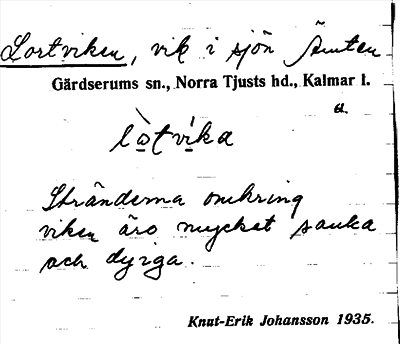 Lortviken, vik i sjön Ämten
Gärdserums sn., Norra Tjusts hd., Kalmar l.
lo̲tvi̲ka
Stränderna omkring
viken äro mycket sanka
och dyiga.
Knut-Erik Johansson 1935.